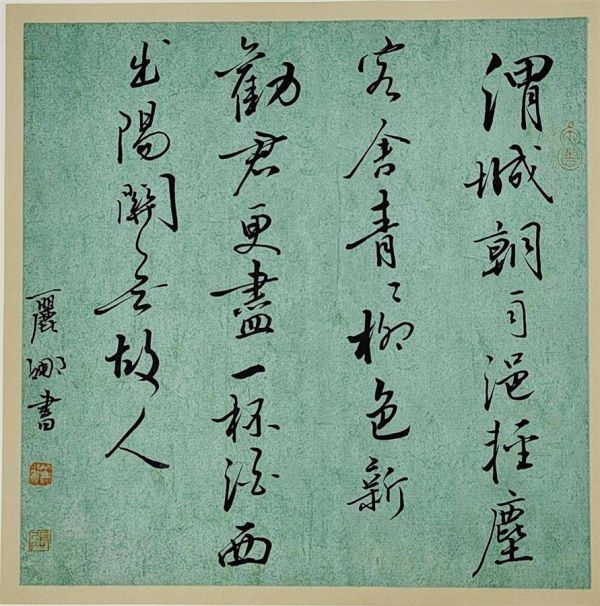 渭城朝雨浥輕塵
客舍青々柳色新
勸君更盡一杯酒西
出陽關無故人
麗娜書